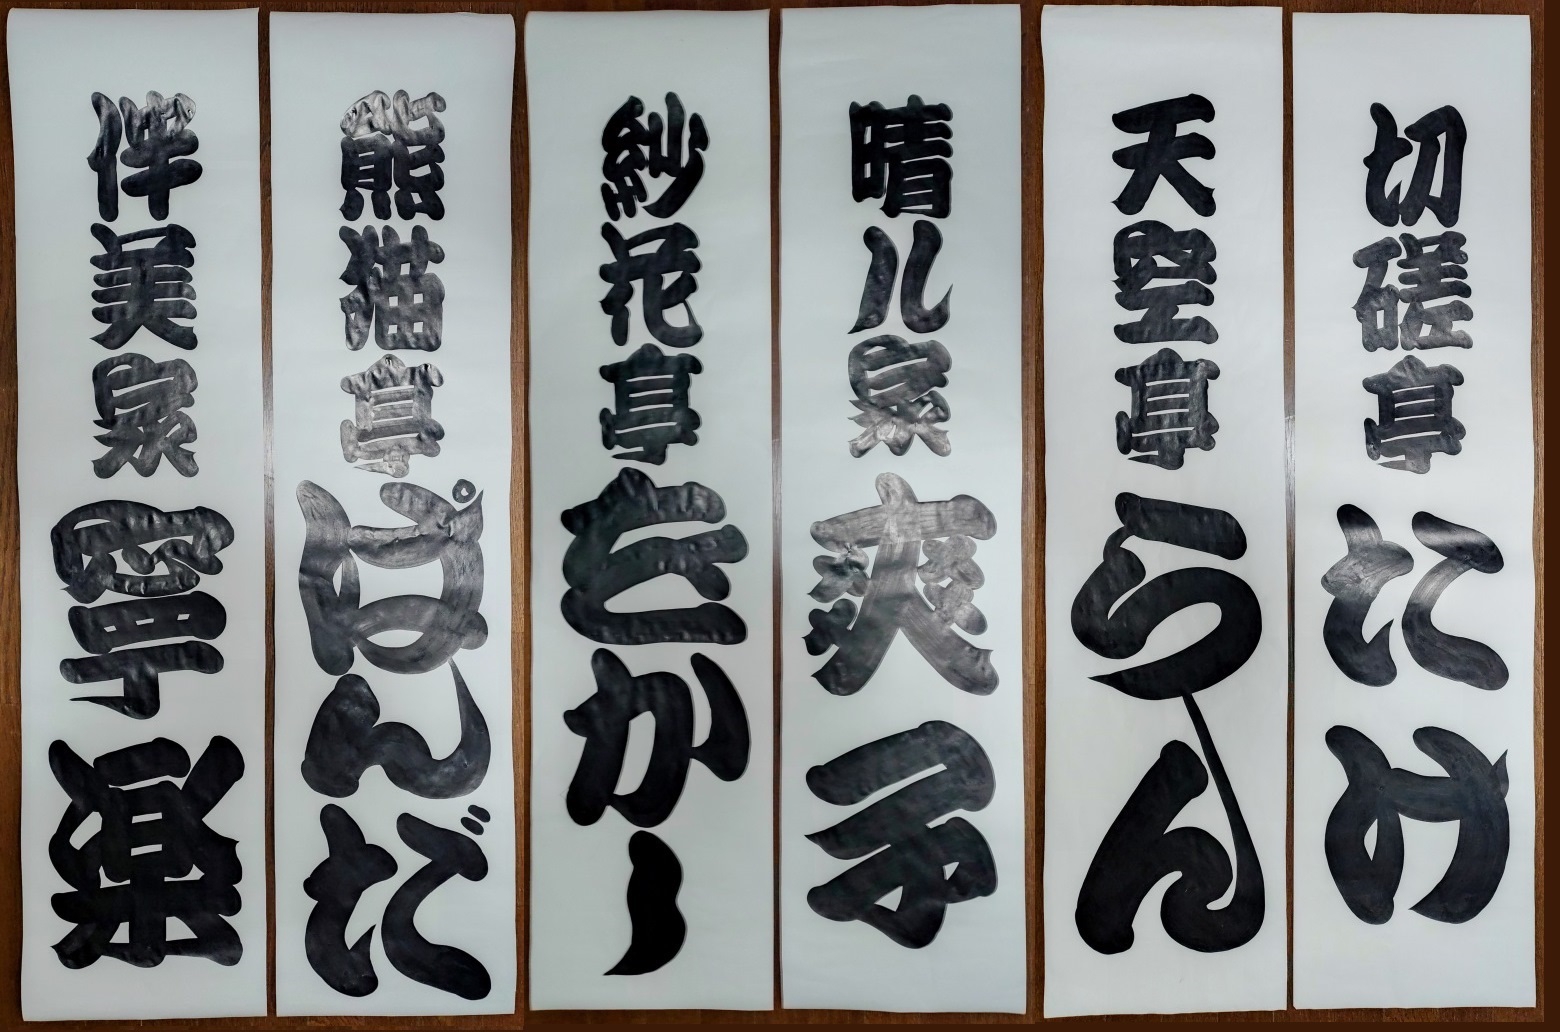 切磋亭ため
天堅亭らん
晴ル家爽子
紗花亭さかー
熊猫亭ぱんだ
伴美家寧楽